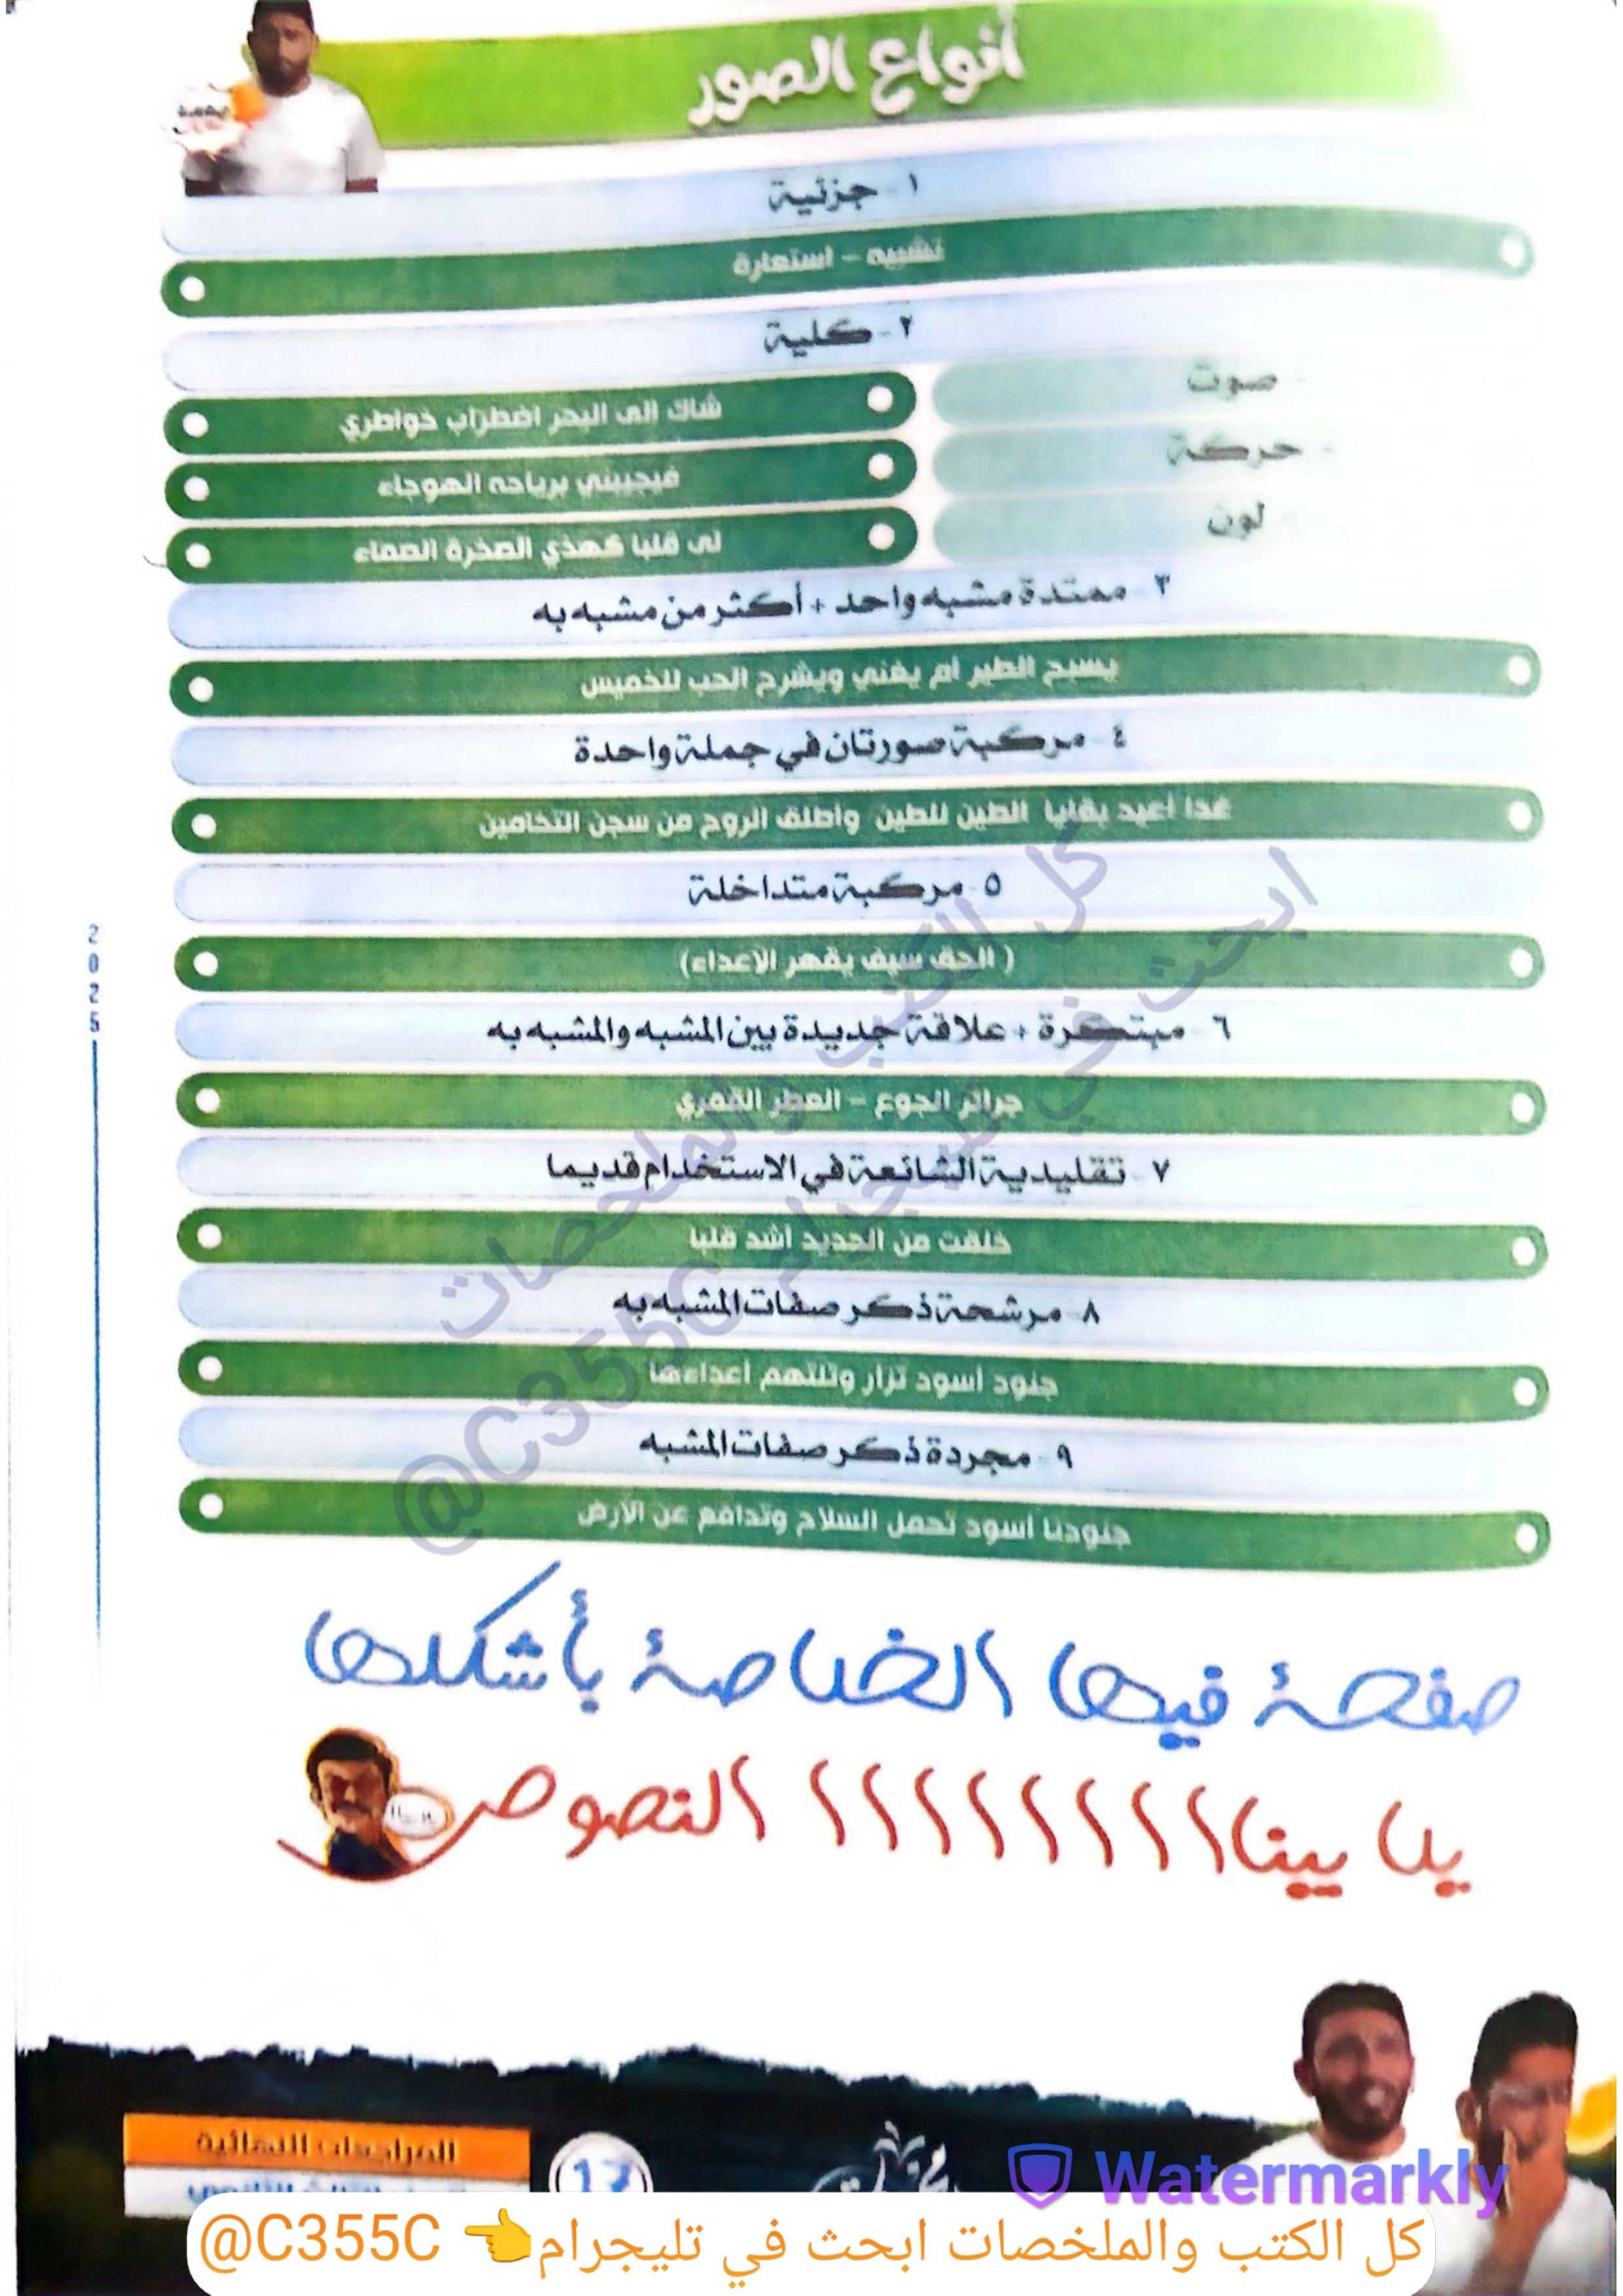 أنواع الصور
١ - جزئية
تشبيه – استعارة
٢ - كلية
- صوت
شاك إلى البحر اضطراب خواطري
- حركة
فيجيبني برياحه الهوجاء
- لون
لي قلبا كهذي الصخرة الصماء
٣ - ممتدة مشبه واحد + أكثر من مشبه به
يسبح الطير أم يغني ويشرح الحب للخميس
٤ - مركبة صورتان في جملة واحدة
غدا أعيد بقايا الطين للطين وأطلق الروح من سجن التخامين
٥ - مركبة متداخلة
( الحق سيف يقهر الإعداء)
٦ - مبتكرة + علاقة جديدة بين المشبه والمشبه به
جرائر الجوع – العطر القمري
٧ - تقليدية الشائعة في الاستخدام قديما
خلقت من الحديد أشد قلبا
٨ - مرشحة ذكر صفات المشبه به
جنود أسود تزار وتلتهم أعداءها
٩ - مجردة ذكر صفات المشبه
جنودنا أسود تحمل السلاح وتدافع عن الأرض
2025
صفحة فيها الخلاصة بأشكلها
يلا بيناااااااااا النصوص
المراجعات النهائية
17
Watermarkly
كل الكتب والملخصات ابحث في تليجرام👈 @C355C
كل الكتب والملخصات
ابحث في تليجرام @C355C